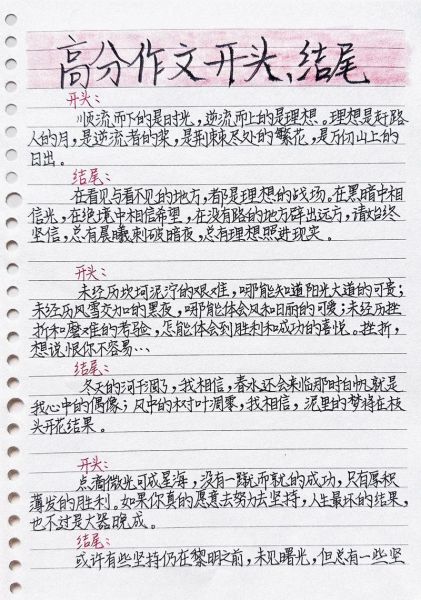 高分作文开头、结尾
开头：
顺流而下的是时光，逆流而上的是理想。理想是赶路
人的月，是逆流者的桨，是荆棘尽处的繁花，是万仞山上的
日出。
结尾：
在看见与看不见的地方，都是理想的战场。在黑暗中相
信光，在绝境中相信希望，在没有路的地方辟出远方，请始终
坚信，总有晨曦刺破暗夜，总有理想照进现实。
开头：
未经历坎坷泥泞的艰难，哪能知道阳光大道的可贵；
未经历风雪交加的黑夜，哪能体会风和日丽的可爱；未经历挫
折和磨难的考验，怎能体会到胜利和成功的喜悦。挫折，
想说恨你不容易…
结尾：
冬天的河干涸了，我相信，春水还会来临那时白帆就是
我心中的偶像；风中的树叶凋零，我相信，泥里的梦将在枝
头开花结果。
开头：
点滴微光可成星海，没有一蹴而就的成功，只有厚积
薄发的胜利。如果你真的愿意去努力去坚持，人生最坏的结果，
也不过是大器晚成。
结尾：
或许有些坚持仍在黎明之前，未见曙光，但总有一些坚